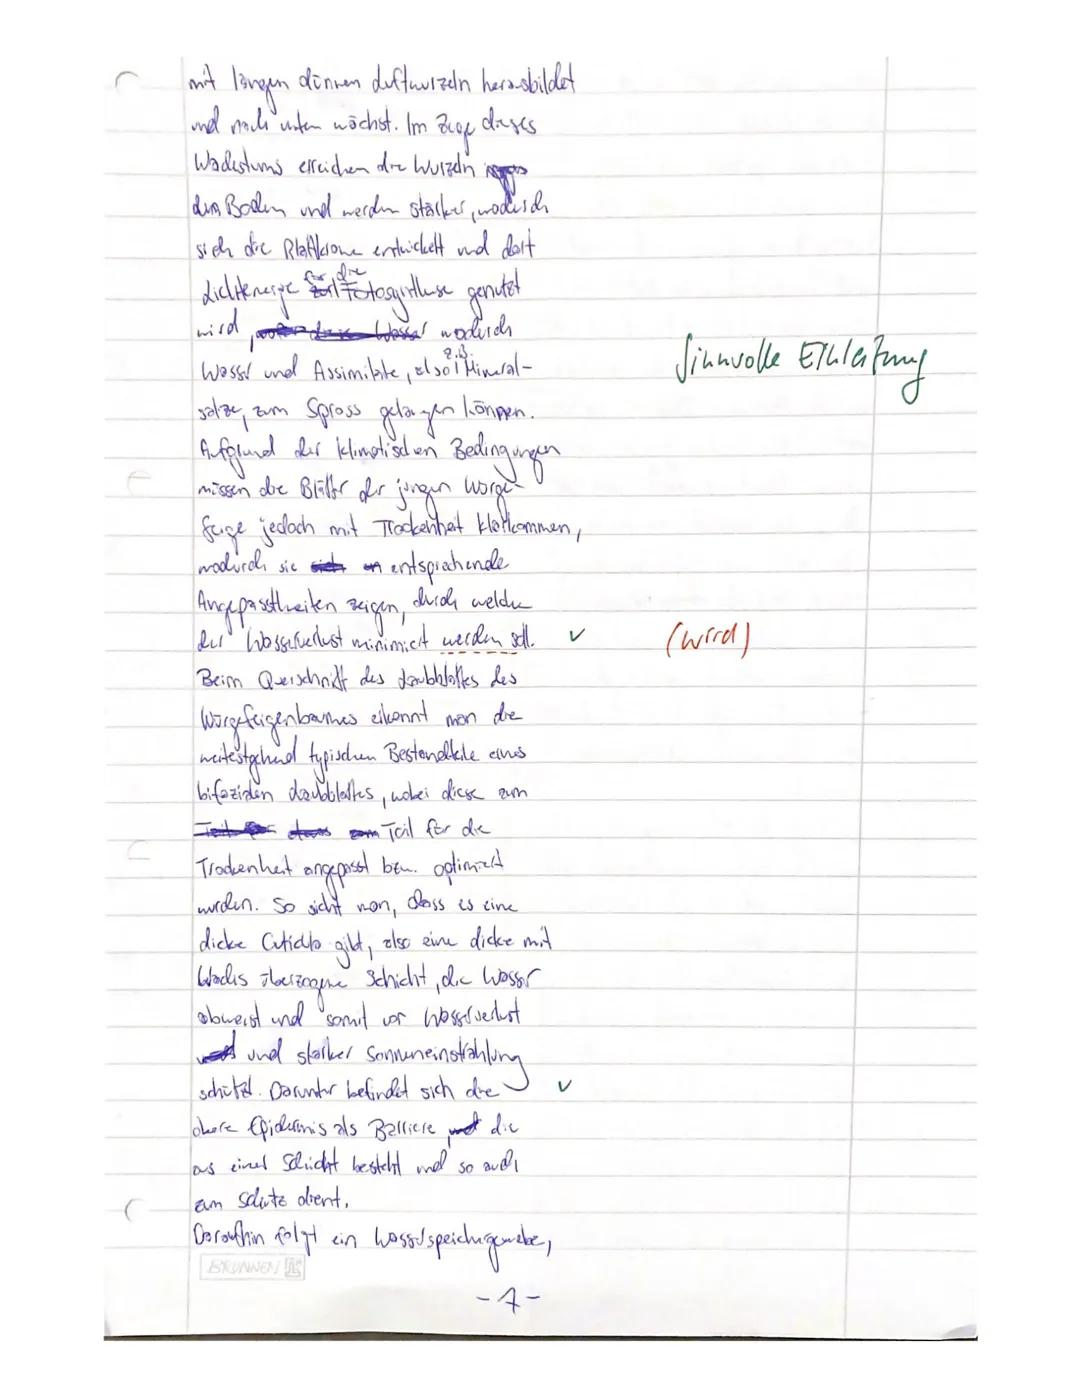 mit langen dünnen Luftwurzeln herausbildet
und nach unten wächst. Im Zuge dieses
Wachstums erreichen die Wurzeln
den Boden und werden stärker, wodurch
sich die Blattkrone entwickelt und dort
Lichtenergie für die Fotosynthese genutzt
wird, wodurch
Wasser und Assimilate, also z.B. Mineral-
salze, zum Spross gelangen können.
Sinnvolle Einleitung
Aufgrund der klimatischen Bedingungen
müssen die Blätter der jungen Würge-
feige jedoch mit Trockenheit klarkommen,
wodurch sie entsprechende
Angepasstheiten zeigen, durch welche
der Wasserverlust minimiert werden soll. ✓ (wird)
Beim Querschnitt des Laubblattes des
Würgefeigenbaumes erkennt man die
weitestgehend typischen Bestandteile eines
bifazialen Laubblattes, wobei diese zum
Teil für die
Trockenheit angepasst bzw. optimiert
wurden. So sieht man, dass es eine
dicke Cuticula gibt, also eine dicke mit
Wachs überzogene Schicht, die Wasser
abweist und somit vor Wasserverlust
und starker Sonneneinstrahlung
schützt. Darunter befindet sich die ✓
obere Epidermis als Barriere, die
aus einer Schicht besteht und so auch
zum Schutz dient.
Daraufhin folgt ein Wasserspeichergewebe,
BRUNNEN
-1-